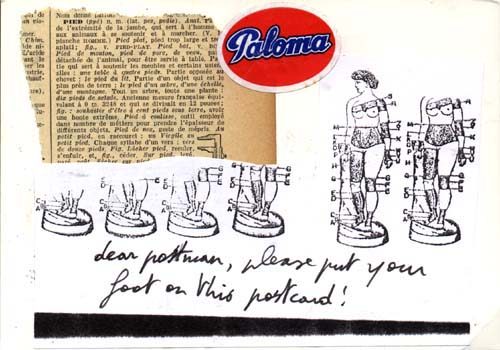 Nom donné
PIED (pié) n. m. (lat. pes, pedis). Anat.
de l'extrémité de la jambe, qui sert à l'homme
aux animaux à se soutenir et à marcher. (V.
planche HOMME.) Pied plat, pied trop large et
aplati; fig., v. PIED-PLAT. Pied bot, v.
Pied de mouton, pied de porc, de veau,
détachée de l'animal, pour être servie à table.
tie qui sert à soutenir les meubles et certains
siles : une table à quatre pieds. Partie opposée au
chevet : le pied du lit. Partie d'un objet qui est le
plus près de terre : le pied d'un arbre, d'une
d'une montagne. Tout un arbre, toute une plante :
dix pieds de salade. Ancienne mesure française équi-
valant à 0 m. 3248 et qui se divisait en 12 pouces;
fig. : souhaiter d'être à cent pieds sous terre, avoir
une honte extrême. Pied à coulisse, outil employé
dans nombre de métiers pour prendre l'épaisseur de
différents objets. Pied de nez, geste de mépris. Au
petit pied, en raccourci : un Virgile au
petit pied. Chaque syllabe d'un vers : vers
de douze pieds. Fig. Lâcher pied, reculer,
s'enfuir, et, fig., céder. Sur pied,
Paloma
dear postman, please put your
foot on this postcard!